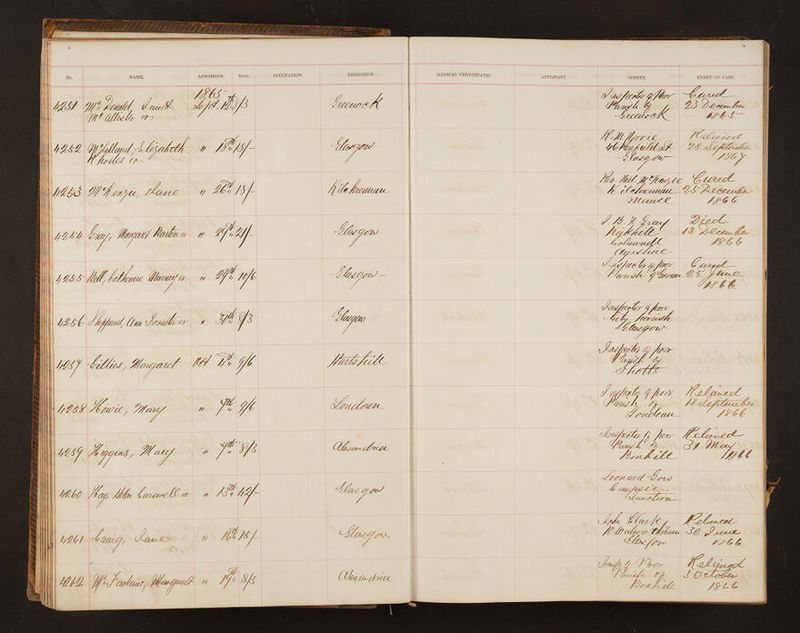 No. NAME. ADMISSION. Rate. OCCUPATION. RESIDENCE. MEDICAL CERTIFICATES. APPLICANT. SURETY. EVENT OF CASE.
1865
4251 Mc Donald, Janet Sept 8/3 Greenock Inspector of Poor Cured
Mc Allister or Parish of 23 December
Greenock 1865
4252 Elizabeth or " 18th 15/- Glasgow Relieved
28 September
Glasgow 1867
4253 McKenzie, Jane " 26th 15/- Kilchrenan Rev Neil McKenzie Cured
Kilchrenan 25 December
Manse 1866
4254 Gray, Margaret or " 29th 21/- Glasgow Gray Died
13 December
Colmonell 1866
Ayrshire
4255 Bell, Catherine Murray or " 29th 10/6 Glasgow Inspector of poor Cured
Parish of Govan 25 June
1866
4256 Sheppard, Ann or " 30th 8/3 Glasgow Inspector of poor
City parish
Glasgow
4257 Gillies, Margaret Oct 4th 9/6 Hartshill Inspector of poor
Parish of
Shotts
4258 Howie, Mary " 7th 9/6 Loudoun Inspector of poor Relieved
Parish of 18 September
Loudoun 1866
4259 Higgins, Mary " 7th 8/3 Alexandria Inspector of poor Relieved
Parish of 31 May
Bonhill 1866
4260 Hay, Helen Carswell or " 13th 12/- Glasgow Leonard Gow
Campsie
Junction
4261 Craig, Jane " 16th 15/- Glasgow John Clark Relieved
30 June
Glasgow 1866
4262 Mc Farlane, Margaret " 19th 8/3 Alexandria Insp of Poor Relieved
Parish of 3 October
Bonhill 1866